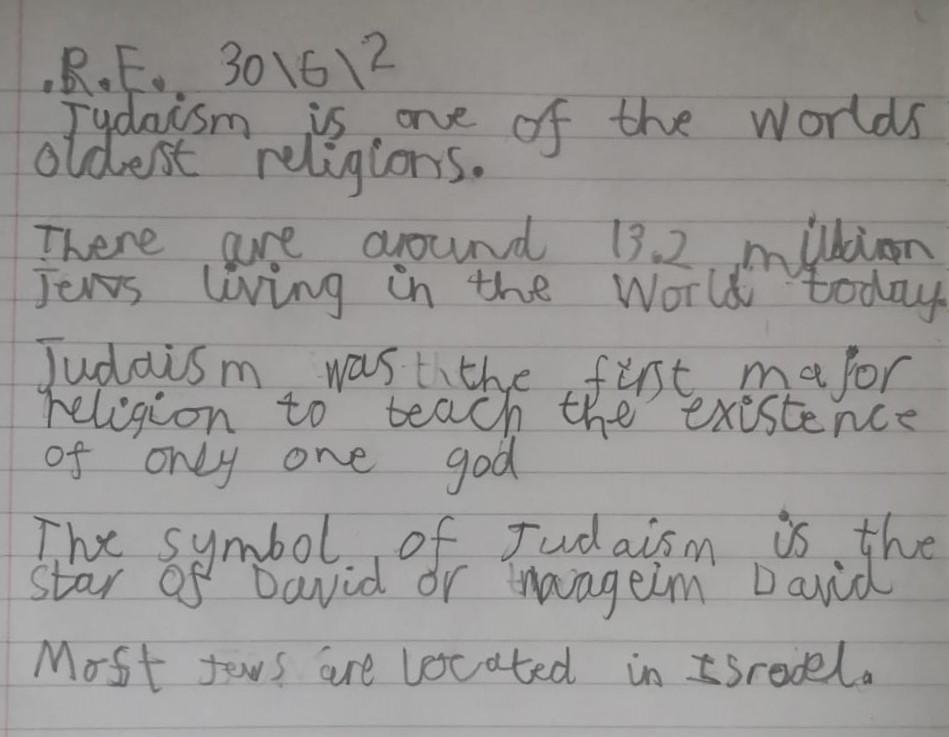 .R.E. 30\6\2
Judaism is one of the worlds
oldest religions.
There are around 13.2 million
Jews living in the World today.
Judaism was the first major
religion to teach the existence
of only one god
The symbol of Judaism is the
star of David or David
Most Jews are located in Israel.